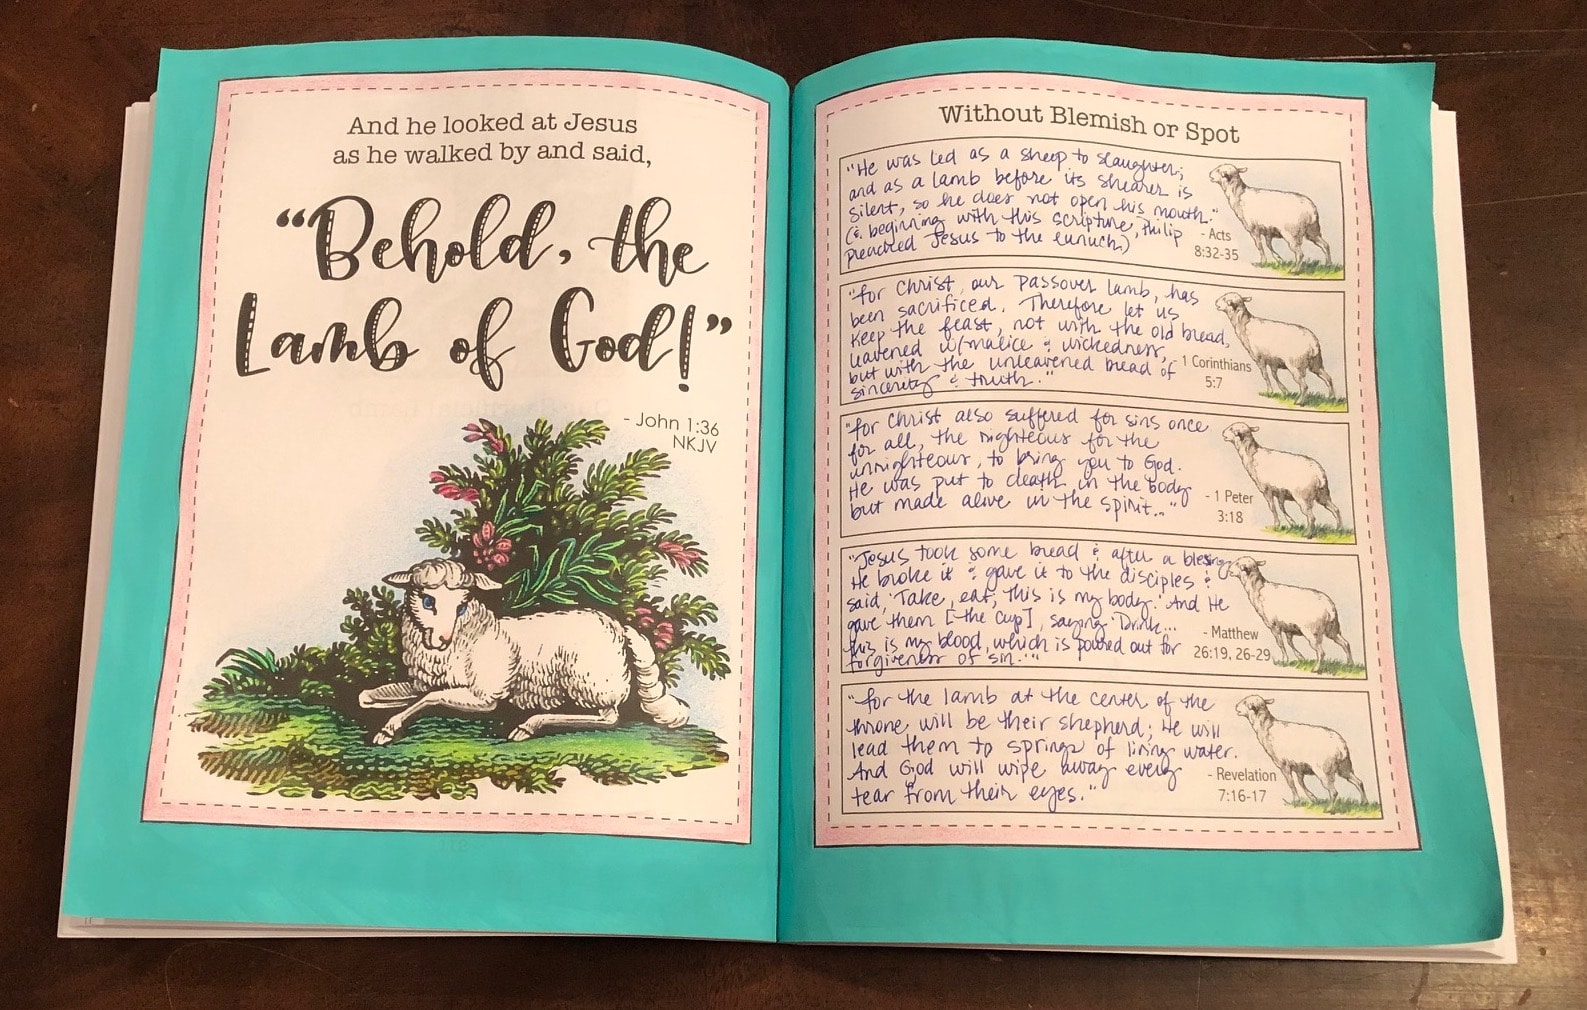 And he looked at Jesus
as he walked by and said,
“Behold, the
Lamb of God!”
- John 1:36
NKJV
Without Blemish or Spot
"He was led as a sheep to slaughter;
and as a lamb before its shearer is
silent, so he does not open his mouth."
(& beginning with this scripture, Philip
preached Jesus to the eunuch)
- Acts
8:32-35
"for Christ, our Passover lamb, has
been sacrificed. Therefore let us
keep the feast, not with the old bread,
leavened w/malice & wickedness,
but with the unleavened bread of
sincerety & truth."
1 Corinthians
5:7
"for Christ also suffered for sins once
for all, the righteous for the
unrighteous, to bring you to God.
He was put to death in the body
but made alive in the spirit..."
- 1 Peter
3:18
"Jesus took some bread & after a blesing
He broke it & gave it to the disciples &
said, 'Take, eat; this is my body.' And He
gave them [the cup], saying 'Drink...
this is my blood, which is poured out for
forgiveness of sin.'"
- Matthew
26:19, 26-29
"for the lamb at the center of the
throne will be their shepherd; He will
lead them to springs of living water.
And God will wipe away every
tear from their eyes."
- Revelation
7:16-17